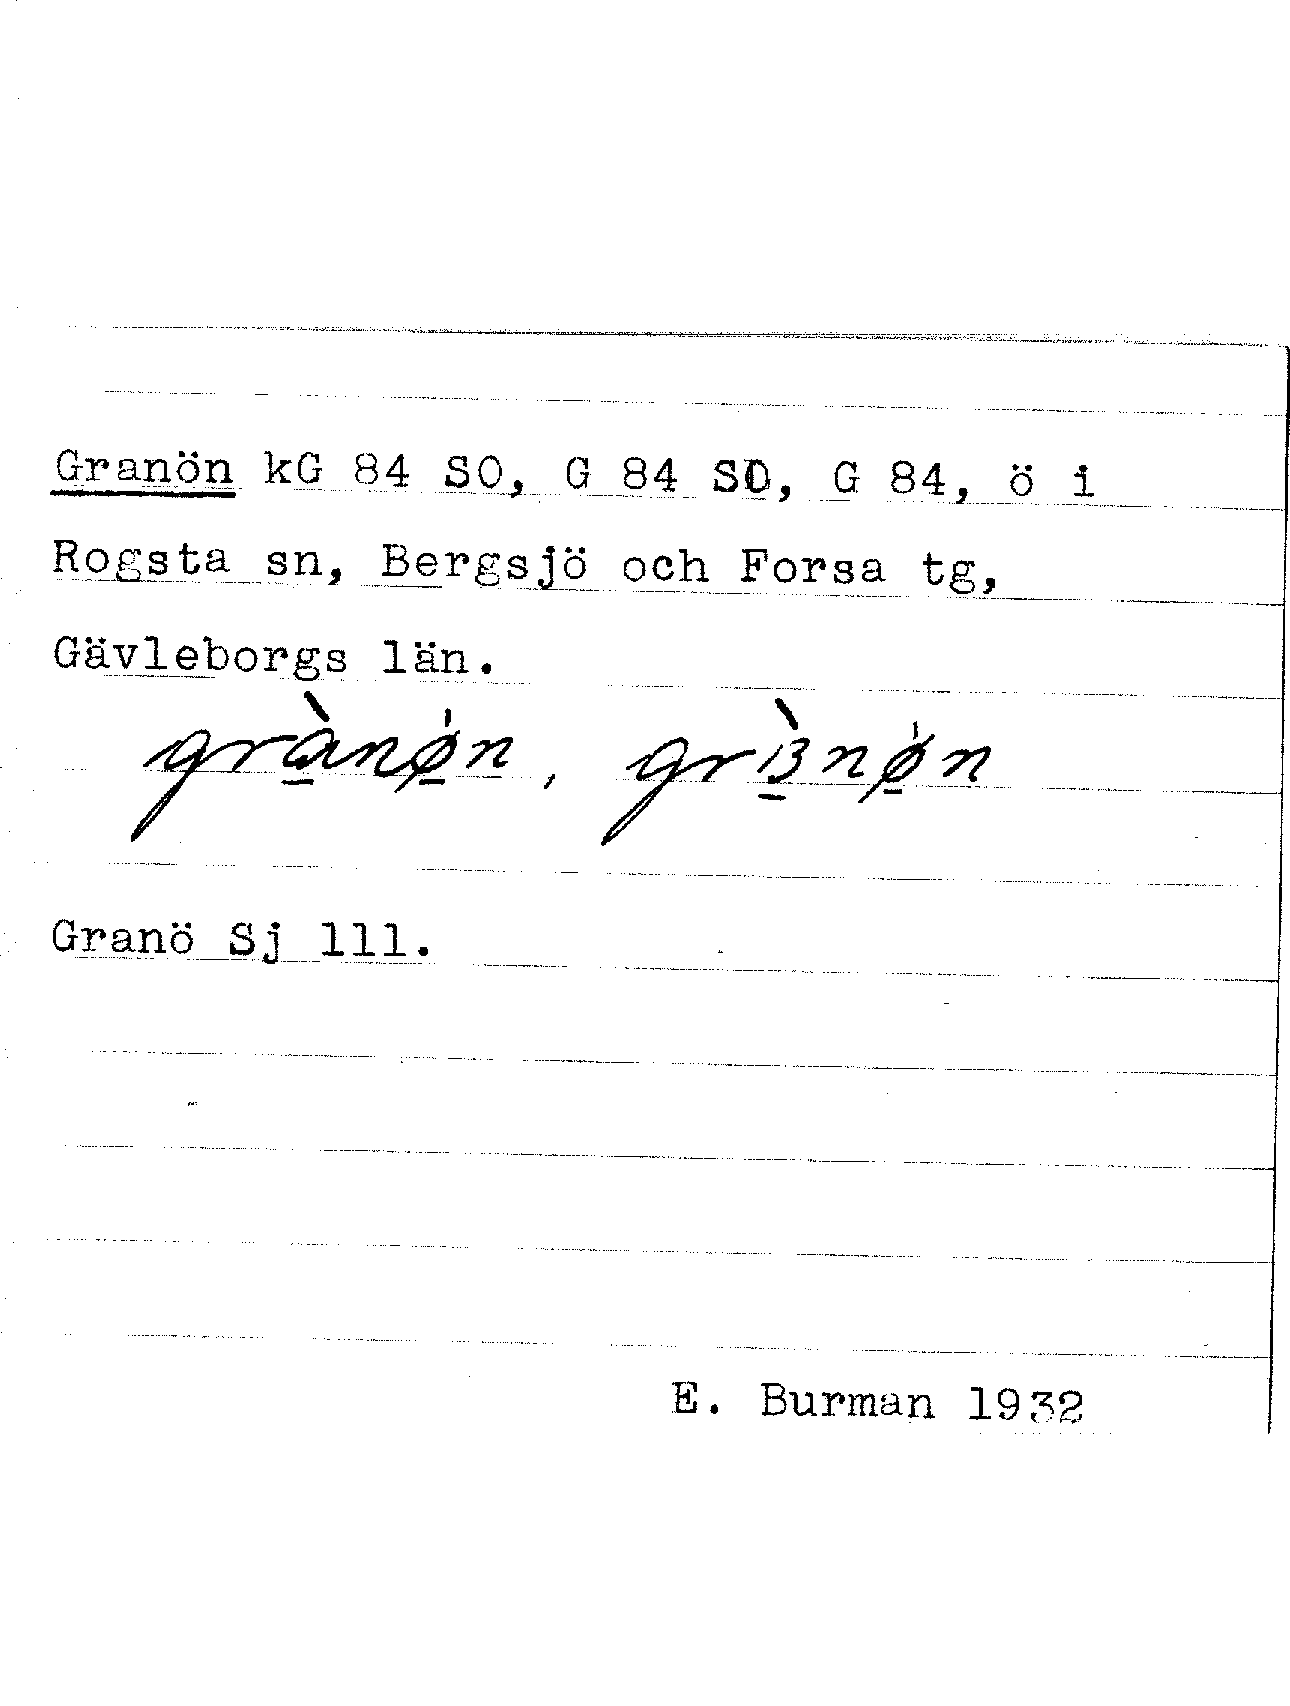 Granön kG 84 SO, G 84 SO, G 84, ö i
Rogsta sn, Bergsjö och Forsa tg,
Gävleborgs län.
Granö Sj 111.
E. Burman 1932